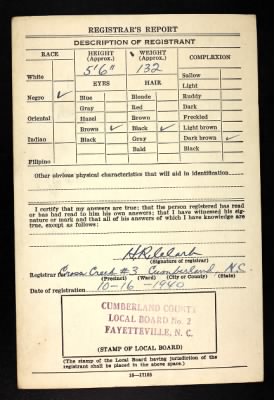 REGISTRAR'S REPORT
DESCRIPTION OF REGISTRANT
RACE HEIGHT (Approx.) WEIGHT (Approx.) COMPLEXION
5'6" 132
White Sallow
EYES HAIR Light
Negro ✓ Blue Blonde Ruddy
Gray Red Dark
Oriental Hazel Brown Freckled
Brown ✓ Black ✓ Light brown
Indian Black Gray Dark brown ✓
Bald Black
Filipino
Other obvious physical characteristics that will aid in identification
I certify that my answers are true; that the person registered has read
or has had read to him his own answers; that I have witnessed his signa-
ture or mark and that all of his answers of which I have knowledge are
true, except as follows:
(Signature of registrar)
Registrar for Cross Creek #3 Cumberland N.C
(Precinct) (Ward) (City or County) (State)
Date of registration 10-16-1940
CUMBERLAND COUNTY
LOCAL BOARD No. 2
FAYETTEVILLE, N. C.
(STAMP OF LOCAL BOARD)
(The stamp of the Local Board having jurisdiction of the
registrant shall be placed in the above space.)
16-17105